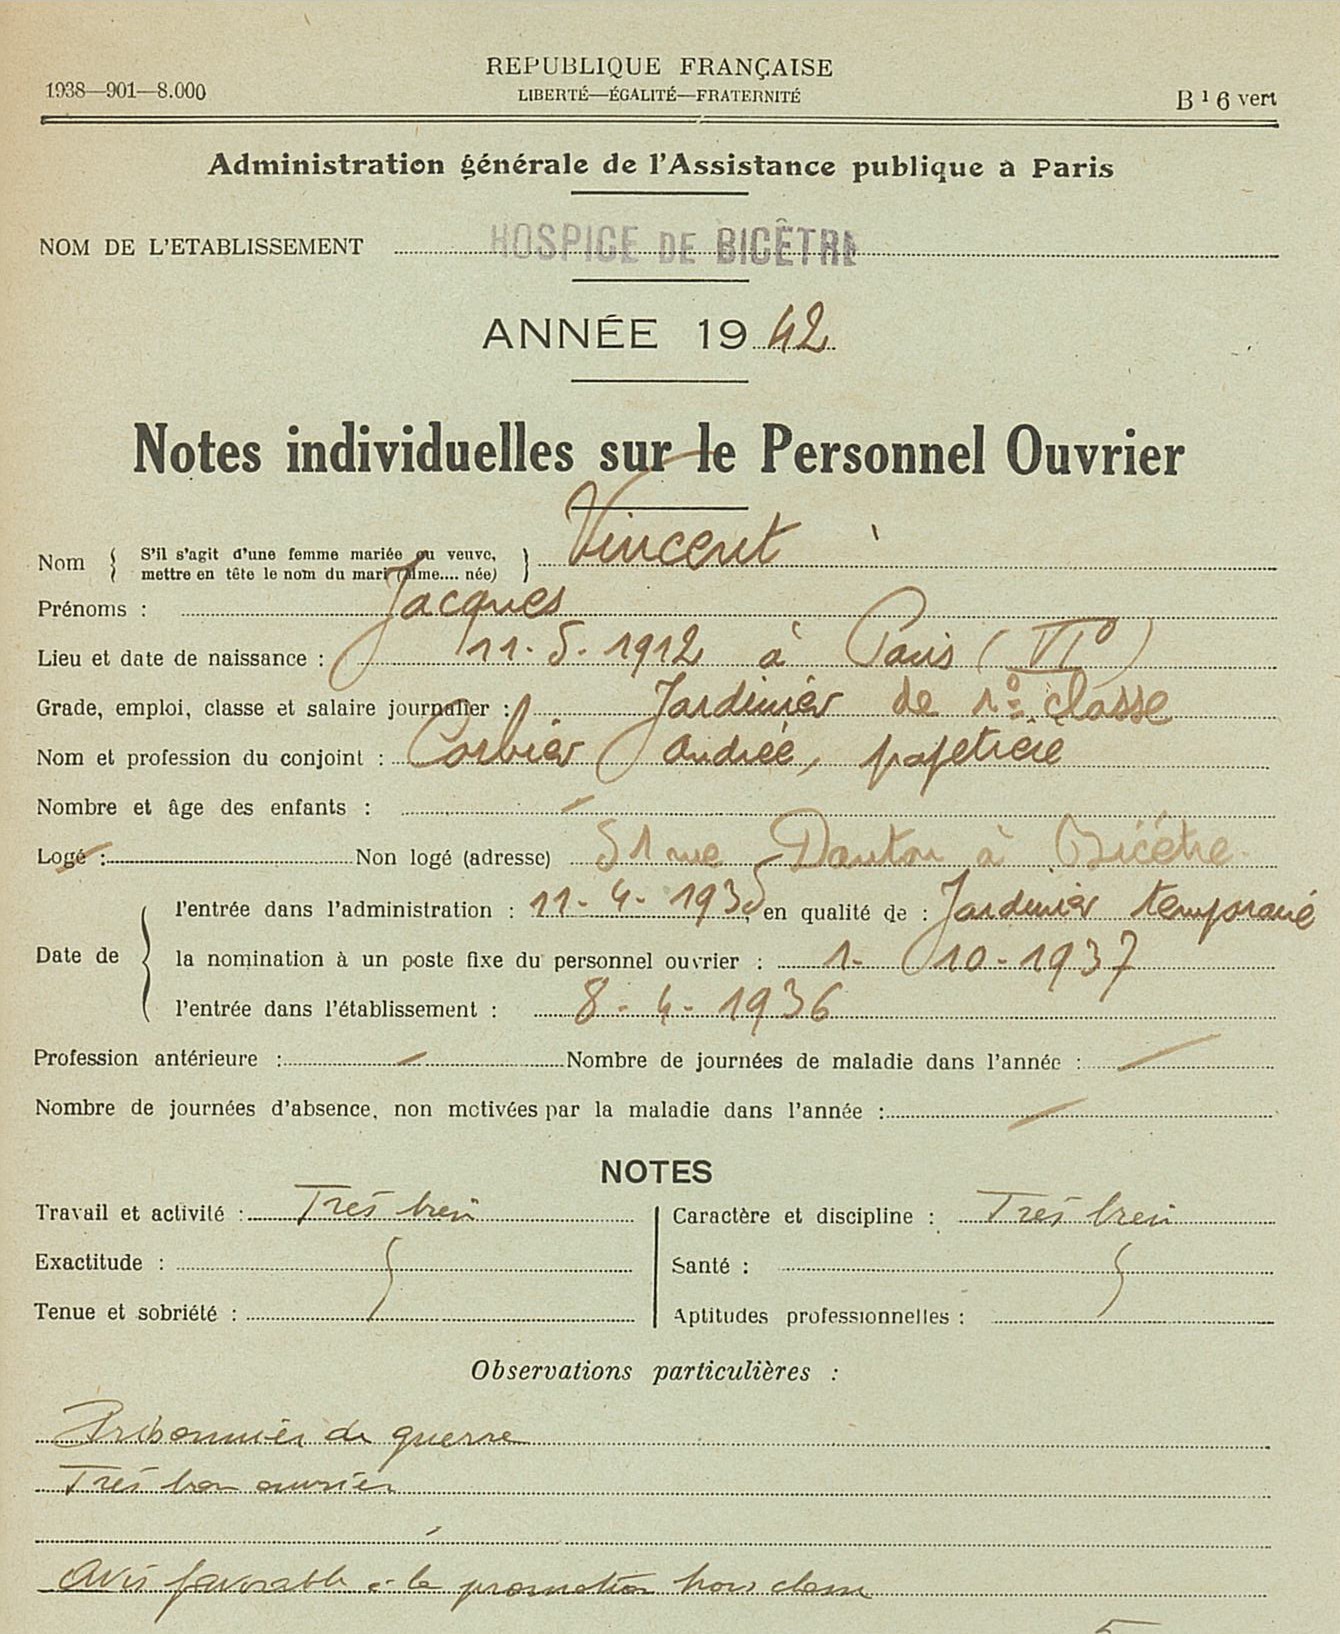 REPUBLIQUE FRANÇAISE
1938—901—8.000
LIBERTÉ—ÉGALITÉ—FRATERNITÉ
B¹ 6 vert
Administration générale de l'Assistance publique à Paris
NOM DE L'ETABLISSEMENT HOSPICE DE BICÊTRE
ANNÉE 1942
Notes individuelles sur le Personnel Ouvrier
Nom { S'il s'agit d'une femme mariée ou veuve, mettre en tête le nom du mari (Mme.... née) } Vincent
Prénoms : Jacques
Lieu et date de naissance : 11-5-1912 à Paris (VIº)
Grade, emploi, classe et salaire journalier : Jardinier de 1º classe
Nom et profession du conjoint : Corbier Andrée, papetière
Nombre et âge des enfants : /
Logé : Non logé (adresse) 51 rue Danton à Bicêtre
Date de { l'entrée dans l'administration : 11-4-1935, en qualité de : Jardinier temporaire
la nomination à un poste fixe du personnel ouvrier : 1-10-1937
l'entrée dans l'établissement : 8-4-1936
Profession antérieure : / Nombre de journées de maladie dans l'année : /
Nombre de journées d'absence, non motivées par la maladie dans l'année : /
NOTES
Travail et activité : Très bien
Caractère et discipline : Très bien
Exactitude :
Santé :
Tenue et sobriété :
Aptitudes professionnelles :
Observations particulières :
Prisonnier de guerre
Très bon ouvrier
Avis favorable à la promotion hors classe